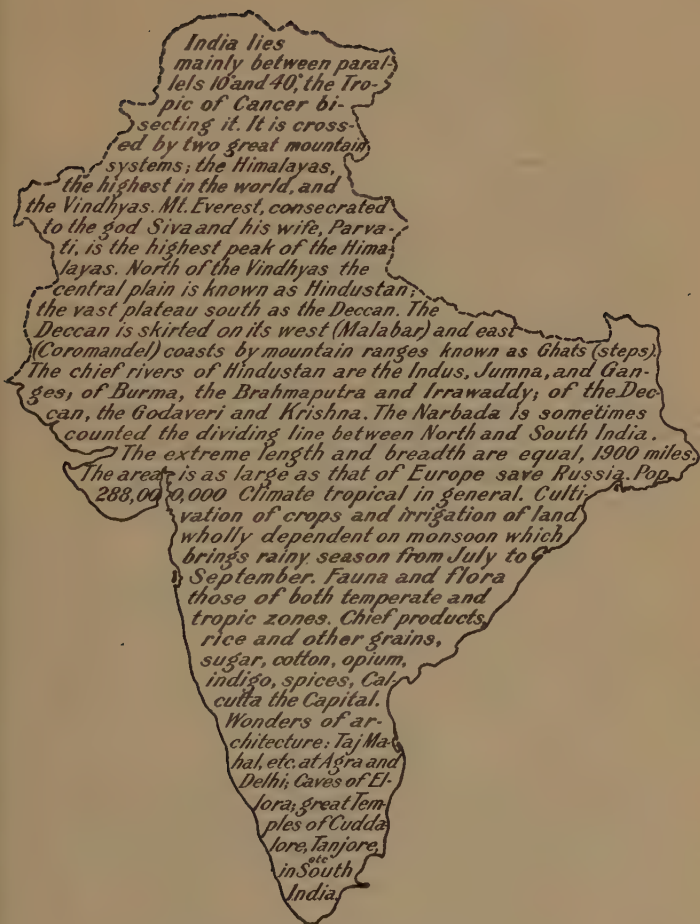 India lies
mainly between paral-
lels 10° and 40°, the Tro-
pic of Cancer bi-
secting it. It is cross-
ed by two great mountain
systems; the Himalayas,
the highest in the world, and
the Vindhyas. Mt. Everest, consecrated
to the god Siva and his wife, Parva-
ti, is the highest peak of the Hima-
layas. North of the Vindhyas the
central plain is known as Hindustan;
the vast plateau south as the Deccan. The
Deccan is skirted on its west (Malabar) and east
(Coromandel) coasts by mountain ranges known as Ghats (steps).
The chief rivers of Hindustan are the Indus, Jumna, and Gan-
ges; of Burma, the Brahmaputra and Irrawaddy; of the Dec-
can, the Godaveri and Krishna. The Narbada is sometimes
counted the dividing line between North and South India.
The extreme length and breadth are equal, 1900 miles.
The area is as large as that of Europe save Russia. Pop.
288,000,000 Climate tropical in general. Culti-
vation of crops and irrigation of land
wholly dependent on monsoon which
brings rainy season from July to
September. Fauna and flora
those of both temperate and
tropic zones. Chief products,
rice and other grains,
sugar, cotton, opium,
indigo, spices, Cal-
cutta the Capital.
Wonders of ar-
chitecture: Taj Ma-
hal, etc. at Agra and
Delhi; Caves of El-
lora; great Tem-
ples of Cudda-
lore, Tanjore,
etc
in South
India.